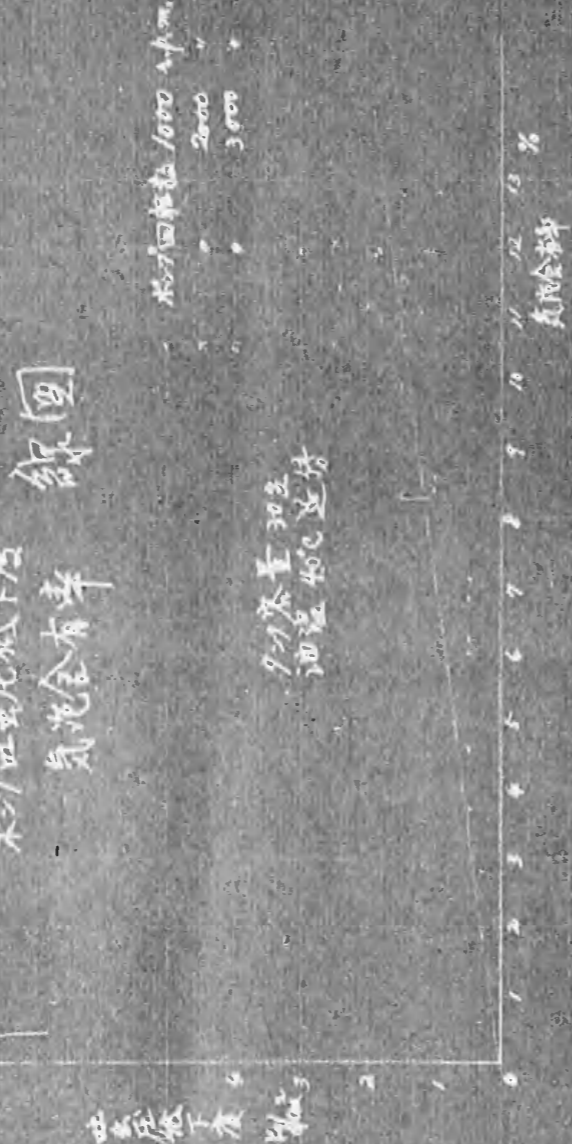 気泡含有率 線図
ポンプ回転数 1000 r.p.m.
〃 2000 〃
〃 3000 〃
タンク容量 30立
油温 40°C
吐出圧低下後 kg/cm²
4
3
2
1
0
1 2 3 4 5 6 7 8 9 10 11 12 13 %
気泡含有率